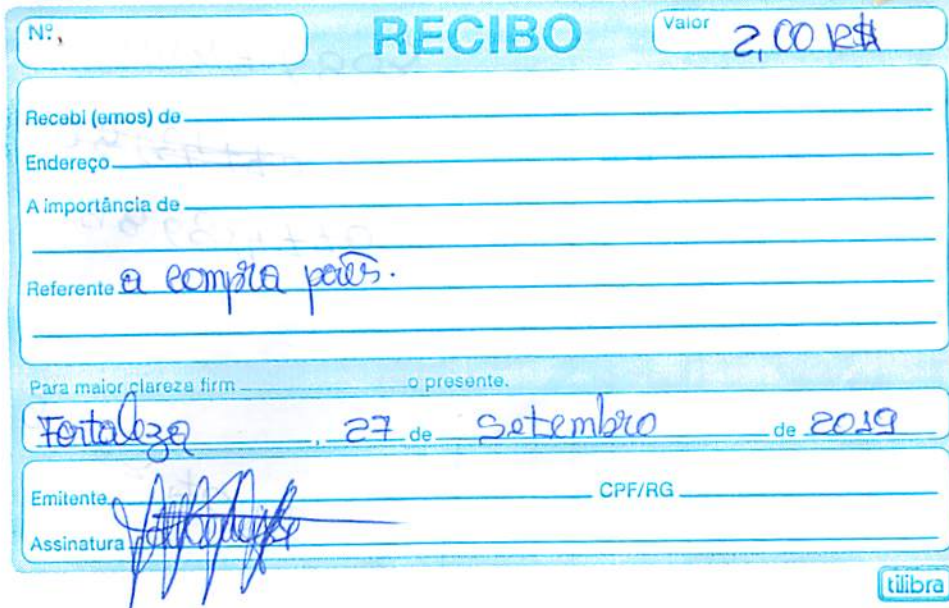 Nº.
RECIBO
Valor 2,00 R$
Recebi (emos) de
Endereço
A importância de
Referente a compra pães.
Para maior clareza firm o presente.
Fortaleza, 27 de Setembro de 2019
Emitente CPF/RG
Assinatura
tilibra